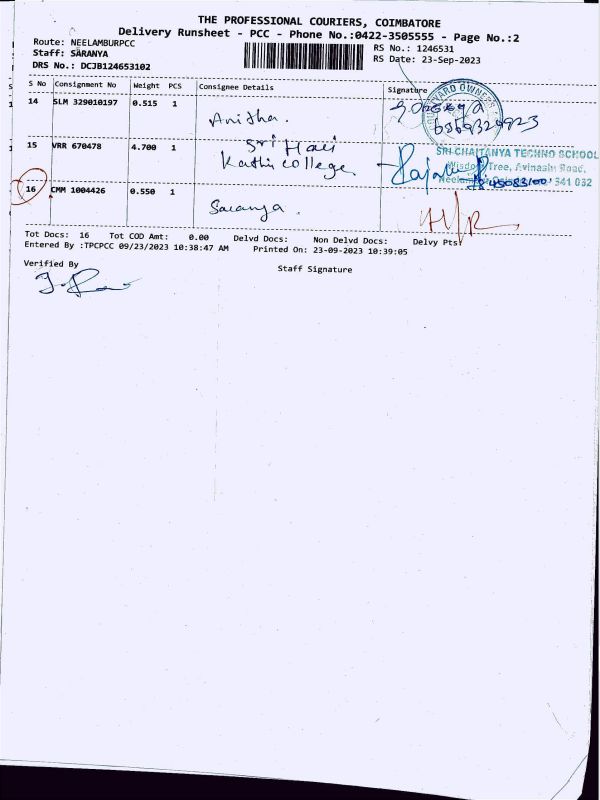 THE PROFESSIONAL COURIERS, COIMBATORE
Delivery Runsheet - PCC - Phone No.:0422-3505555 - Page No.:2
Route: NEELAMBURPCC
Staff: SARANYA
DRS No.: DCJB124653102
RS No.: 1246531
RS Date: 23-Sep-2023
S No Consignment No Weight PCS Consignee Details Signature
14 SLM 329010197 0.515 1 Anitha.
15 VRR 670478 4.700 1 Sri Hari
Kathir college
SRI CHAITANYA TECHNO SCHOOL
Wisdom Tree, Avinashi Road,
16 CMM 1004426 0.550 1 Saranya.
Tot Docs: 16 Tot COD Amt: 0.00 Delvd Docs: Non Delvd Docs: Delvy Pts
Entered By :TPCPCC 09/23/2023 10:38:47 AM Printed On: 23-09-2023 10:39:05
Verified By
Staff Signature